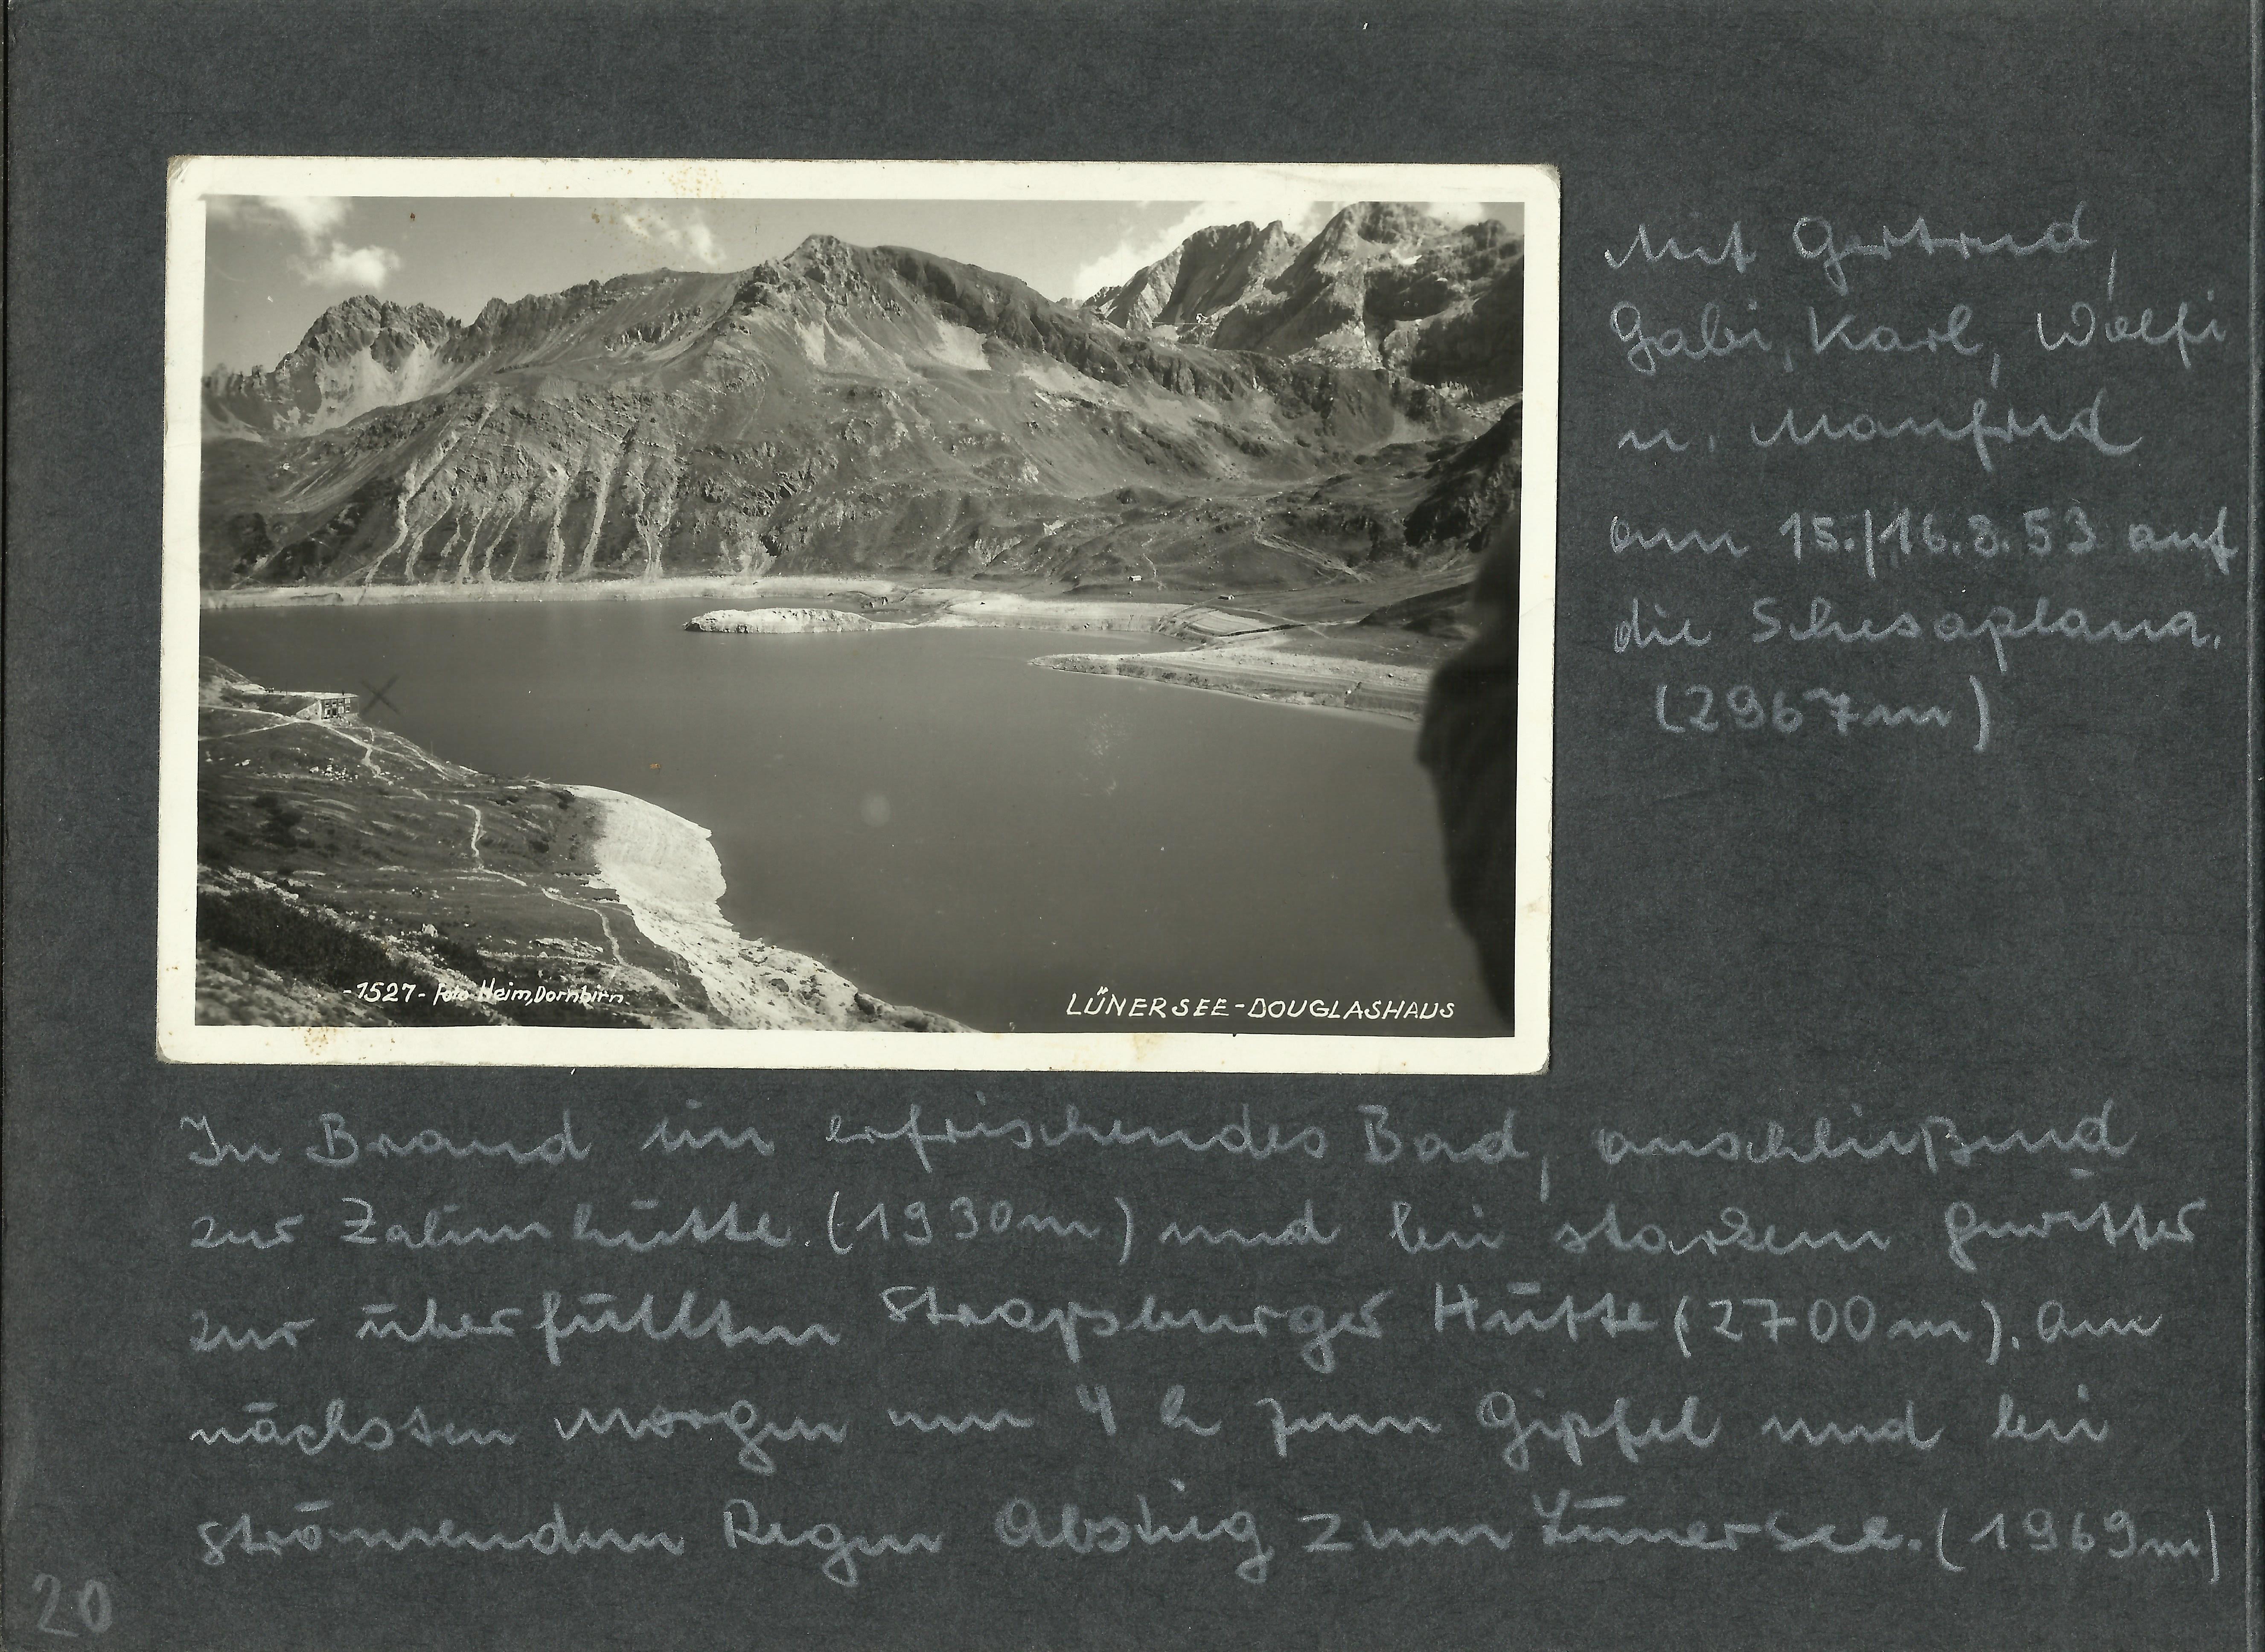 Mit Gertrud,
Gabi, Karl, Wolfi
u. Manfred
am 15./16.8.53 auf
die Schesaplana.
(2967m)
-1527- Foto Heim, Dornbirn.
LÜNERSEE-DOUGLASHAUS
In Brand ein erfrischendes Bad, anschließend
zur Zalimhütte (1930m) und bei starkem Gewitter
zur überfüllten Straßburger Hütte (2700m). Am
nächsten Morgen um 4 h zum Gipfel und bei
strömendem Regen Abstieg zum Lünersee. (1969m)
20